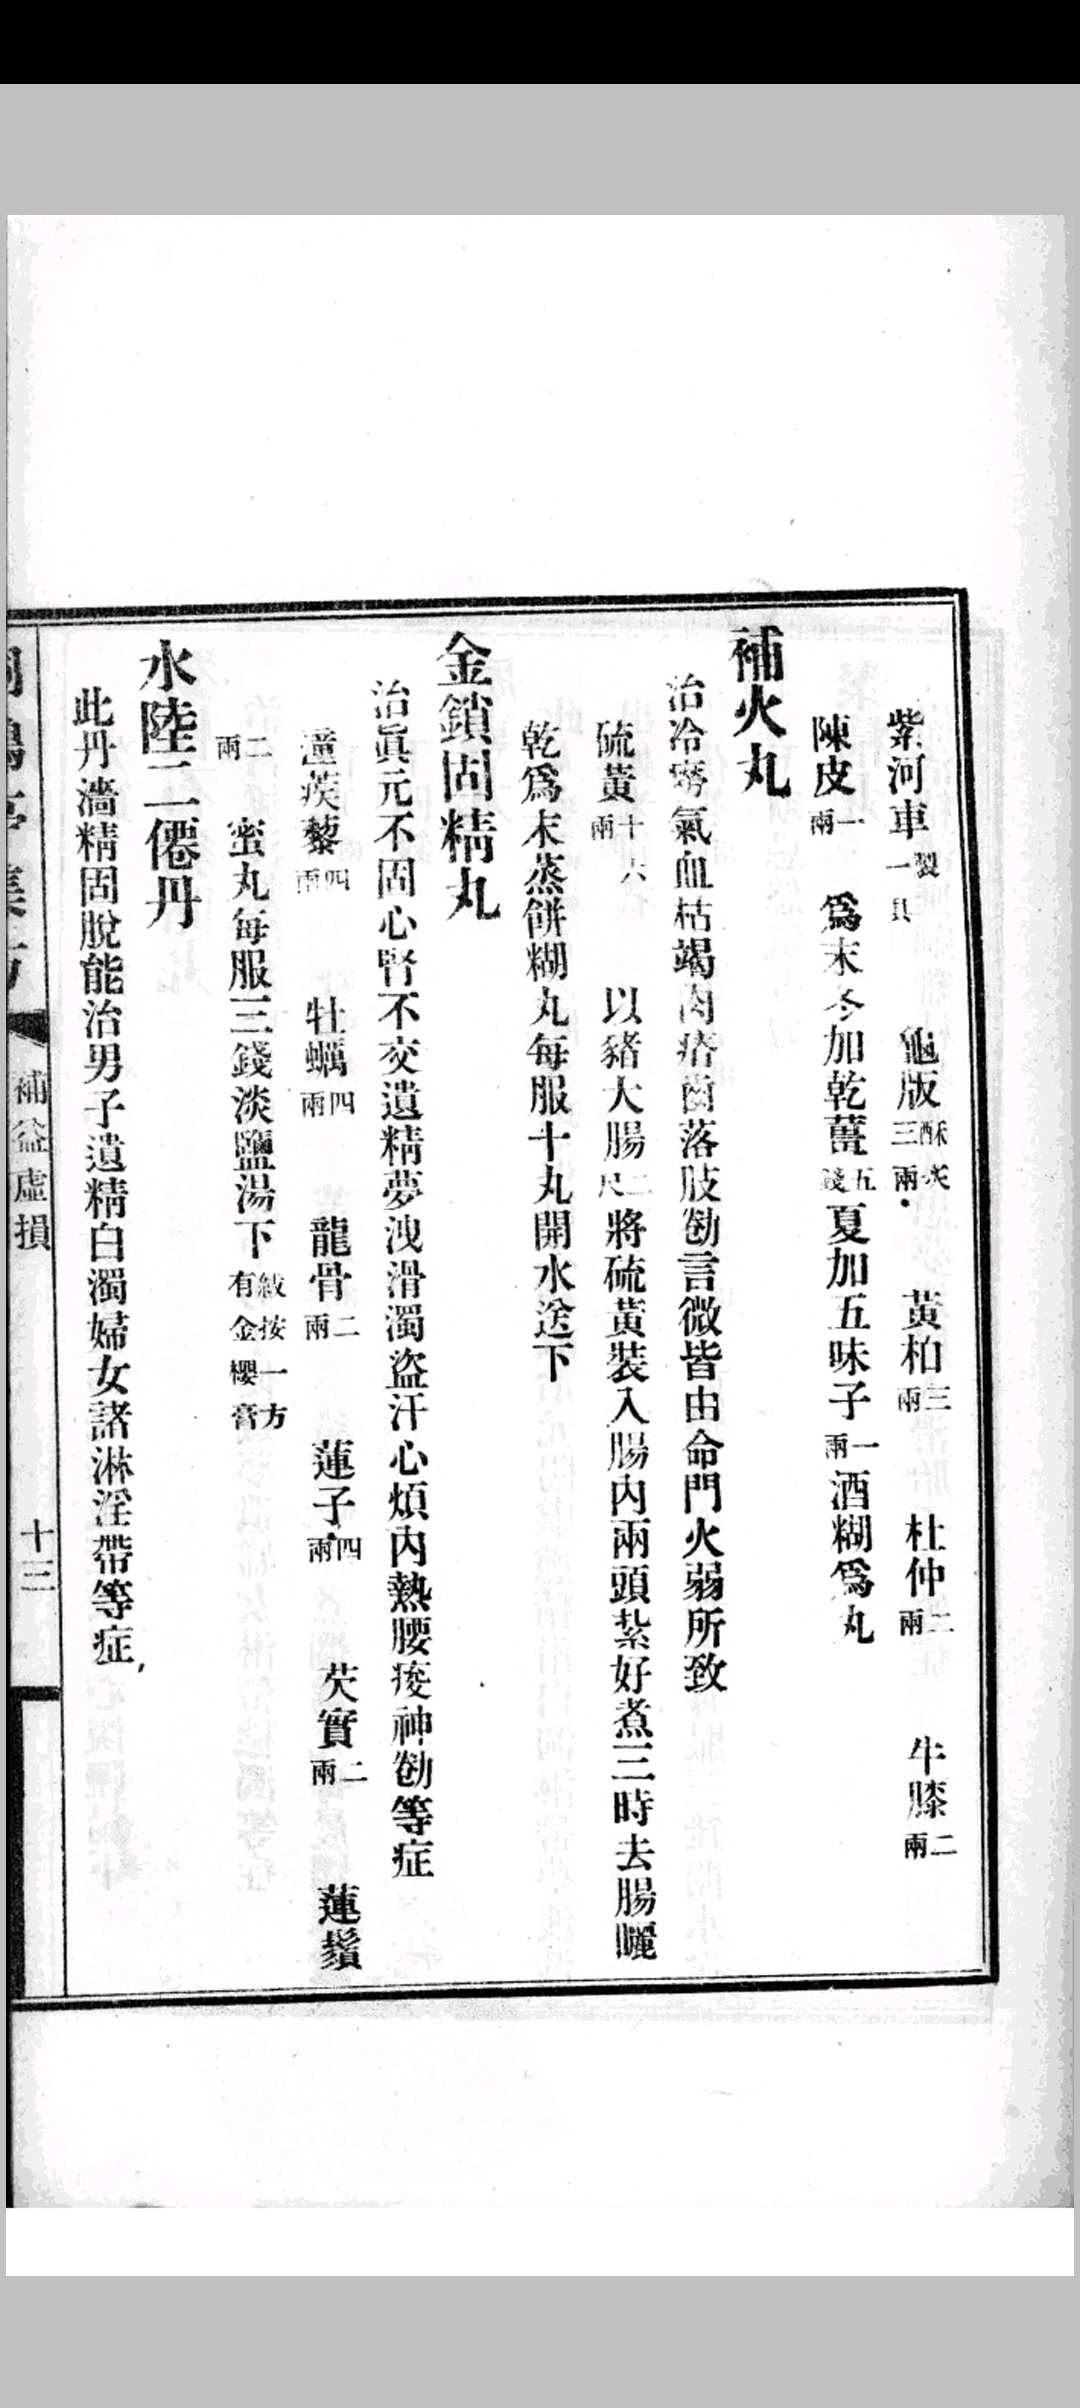 紫河車製一具　龜版酥炙三兩　黃柏三兩　杜仲二兩　牛膝二兩
陳皮一兩　爲末冬加乾薑五錢夏加五味子一兩酒糊爲丸
補火丸
治冷癆氣血枯竭肉瘠齒落肢勌言微皆由命門火弱所致
硫黃十六兩　以豬大腸二尺將硫黃裝入腸內兩頭紮好煮三時去腸曬
乾爲末蒸餅糊丸每服十丸開水送下
金鎖固精丸
治眞元不固心腎不交遺精夢洩滑濁盜汗心煩內熱腰痠神勌等症
潼蒺藜四兩　牡蠣四兩　龍骨二兩　蓮子四兩　芡實二兩　蓮鬚
二兩　蜜丸每服三錢淡鹽湯下紱按一方有金櫻膏
水陸二僊丹
此丹濇精固脫能治男子遺精白濁婦女諸淋淫帶等症
補益虛損
十三